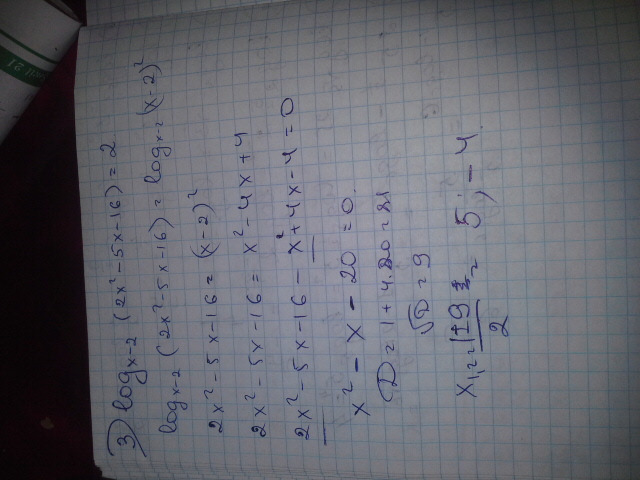 3) log x-2 (2x² - 5x - 16) = 2
log x-2 (2x² - 5x - 16) = log x-2 (x - 2)²
2x² - 5x - 16 = (x - 2)²
2x² - 5x - 16 = x² - 4x + 4
2x² - 5x - 16 - x² + 4x - 4 = 0
x² - x - 20 = 0
D = 1 + 4·20 = 81
√D = 9
x1,2 = 1±9 / 2 = 5; -4